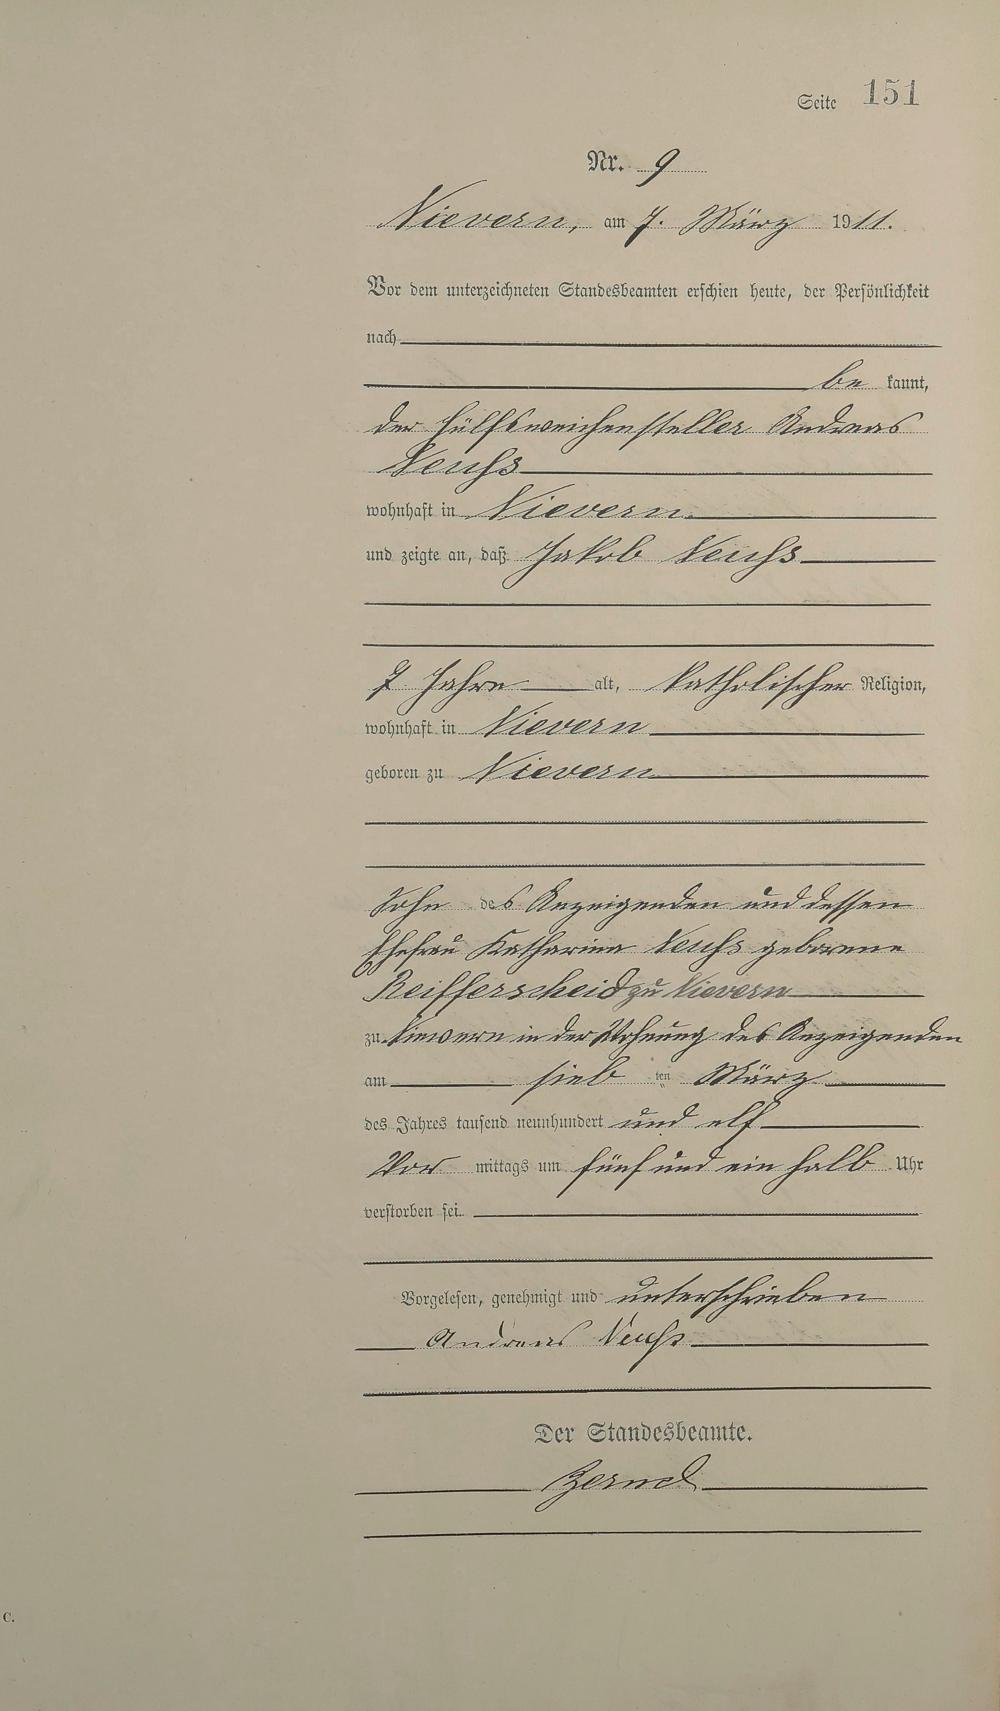 Seite 151
Nr. 9
Nievern, am 7. März 1911.
Vor dem unterzeichneten Standesbeamten erschien heute, der Persönlichkeit
nach
be kannt,
der Hülfsweichensteller Andreas
Neuhs
wohnhaft in Nievern
und zeigte an, daß Jakob Neuhs
7 Jahre alt, katholischer Religion,
wohnhaft in Nievern
geboren zu Nievern
Sohn des Anzeigenden und dessen
Ehefrau Katharina Neuhs geborene
Reifferscheid zu Nievern
zu Niewern in der Wohnung des Anzeigenden
am sieb ten März
des Jahres tausend neunhundert und elf
Vor mittags um fünf und ein halb Uhr
verstorben sei.
Vorgelesen, genehmigt und unterschrieben
Andreas Neuhs
Der Standesbeamte.
C.